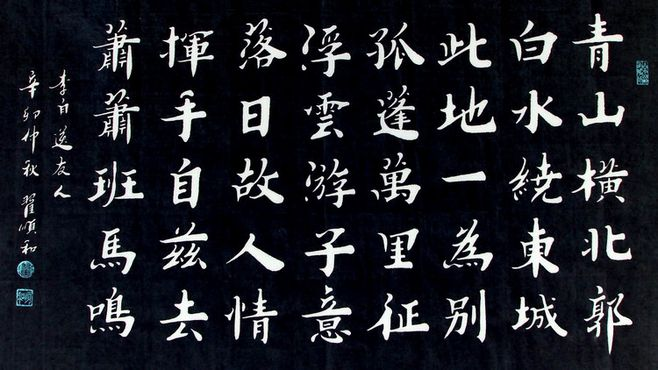 青山橫北郭
白水繞東城
此地一為別
孤蓬萬里征
浮雲游子意
落日故人情
揮手自茲去
蕭蕭班馬鳴
李白送友人
辛卯仲秋 翟順和